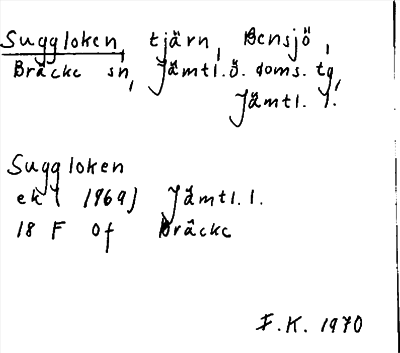 Suggloken, tjärn, Bensjö,
Bräcke sn, Jämtl.ö. doms. tg,
Jämtl. l.
Suggloken
ek ( 1969) Jämtl. l.
18 F Of Bräcke
F.K. 1970